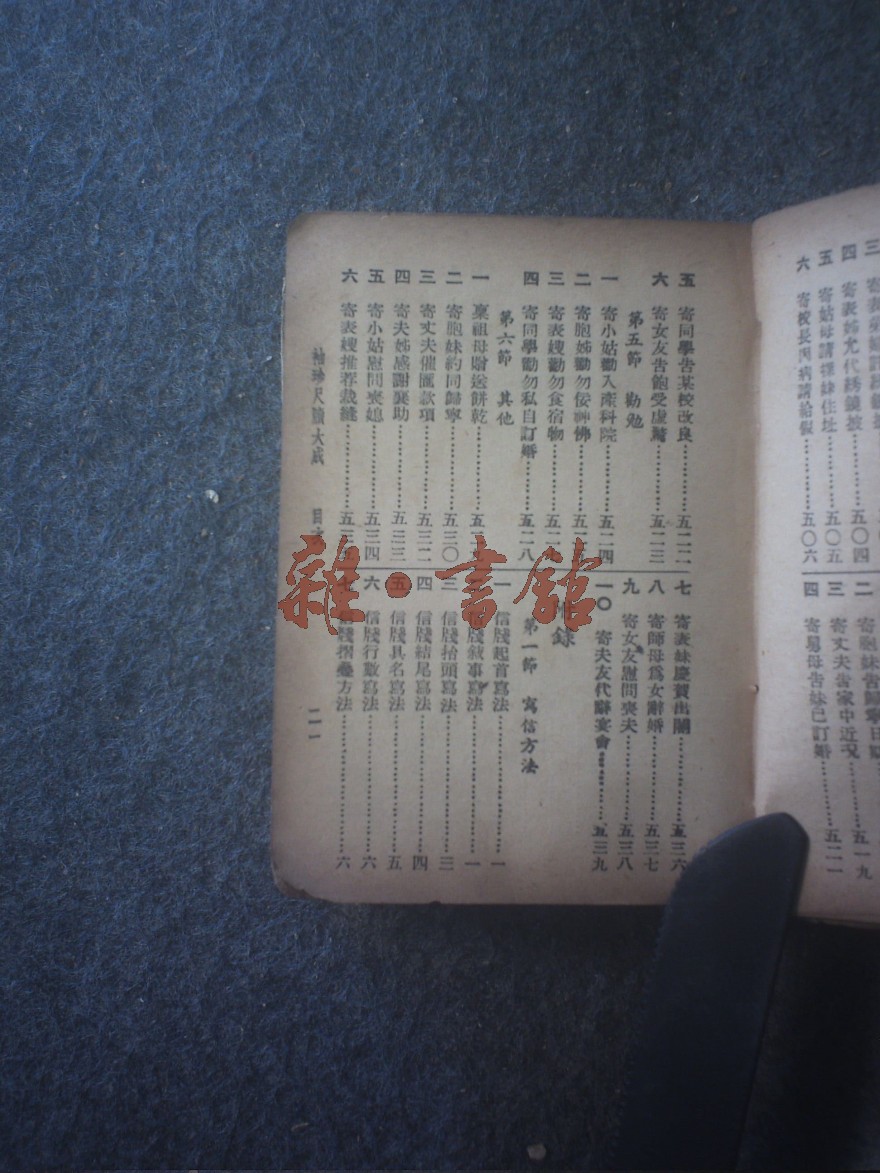 六 寄校長丙病請給假……五〇六
四 寄舅母告妹已訂婚……五二一
五 寄同學告某校改良……五二二
六 寄女友告飽受虛驚……五二三
第五節 勸勉
一 寄小姑勸入產科院……五二四
二 寄胞姊勸勿佞神佛
三 寄表嫂勸勿食宿物
四 寄同學勸勿私自訂婚……五二八
第六節 其他
一 稟祖母贈送餅乾
二 寄胞妹約同歸寧……五三〇
三 寄丈夫催匯款項……五三二
四 寄夫姊感謝襄助……五三三
五 寄小姑慰問喪媳……五三四
六 寄表嫂推荐裁縫
七 寄表妹慶賀出閣……五三六
八 寄師母爲女辭婚……五三七
九 寄女友慰問喪夫……五三八
一〇 寄夫友代辭宴會……五三九
附錄
第一節 寫信方法
一 信牋起首寫法……一
信牋敍事寫法……一
三 信牋抬頭寫法……三
四 信牋結尾寫法……四
五 信牋具名寫法……五
六 信牋行款寫法……六
七 信牋摺疊方法……六
袖珍尺牘大成 目 二一
雜·書館